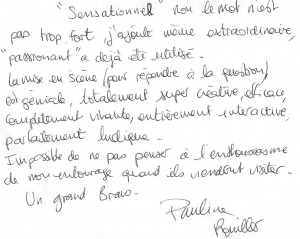 "Sensationnel" non le mot n'est
pas trop fort, j'ajoute même extraordinaire,
"passionnant" a déjà été utilisé.
La mise en scène (pour répondre à la question)
est géniale, totalement super créative, efficace,
complètement vivante, entièrement interactive,
parfaitement ludique.
Impossible de ne pas penser à l'enthousiasme
de mon entourage quand ils viendront visiter.
Un grand Bravo.
Pauline